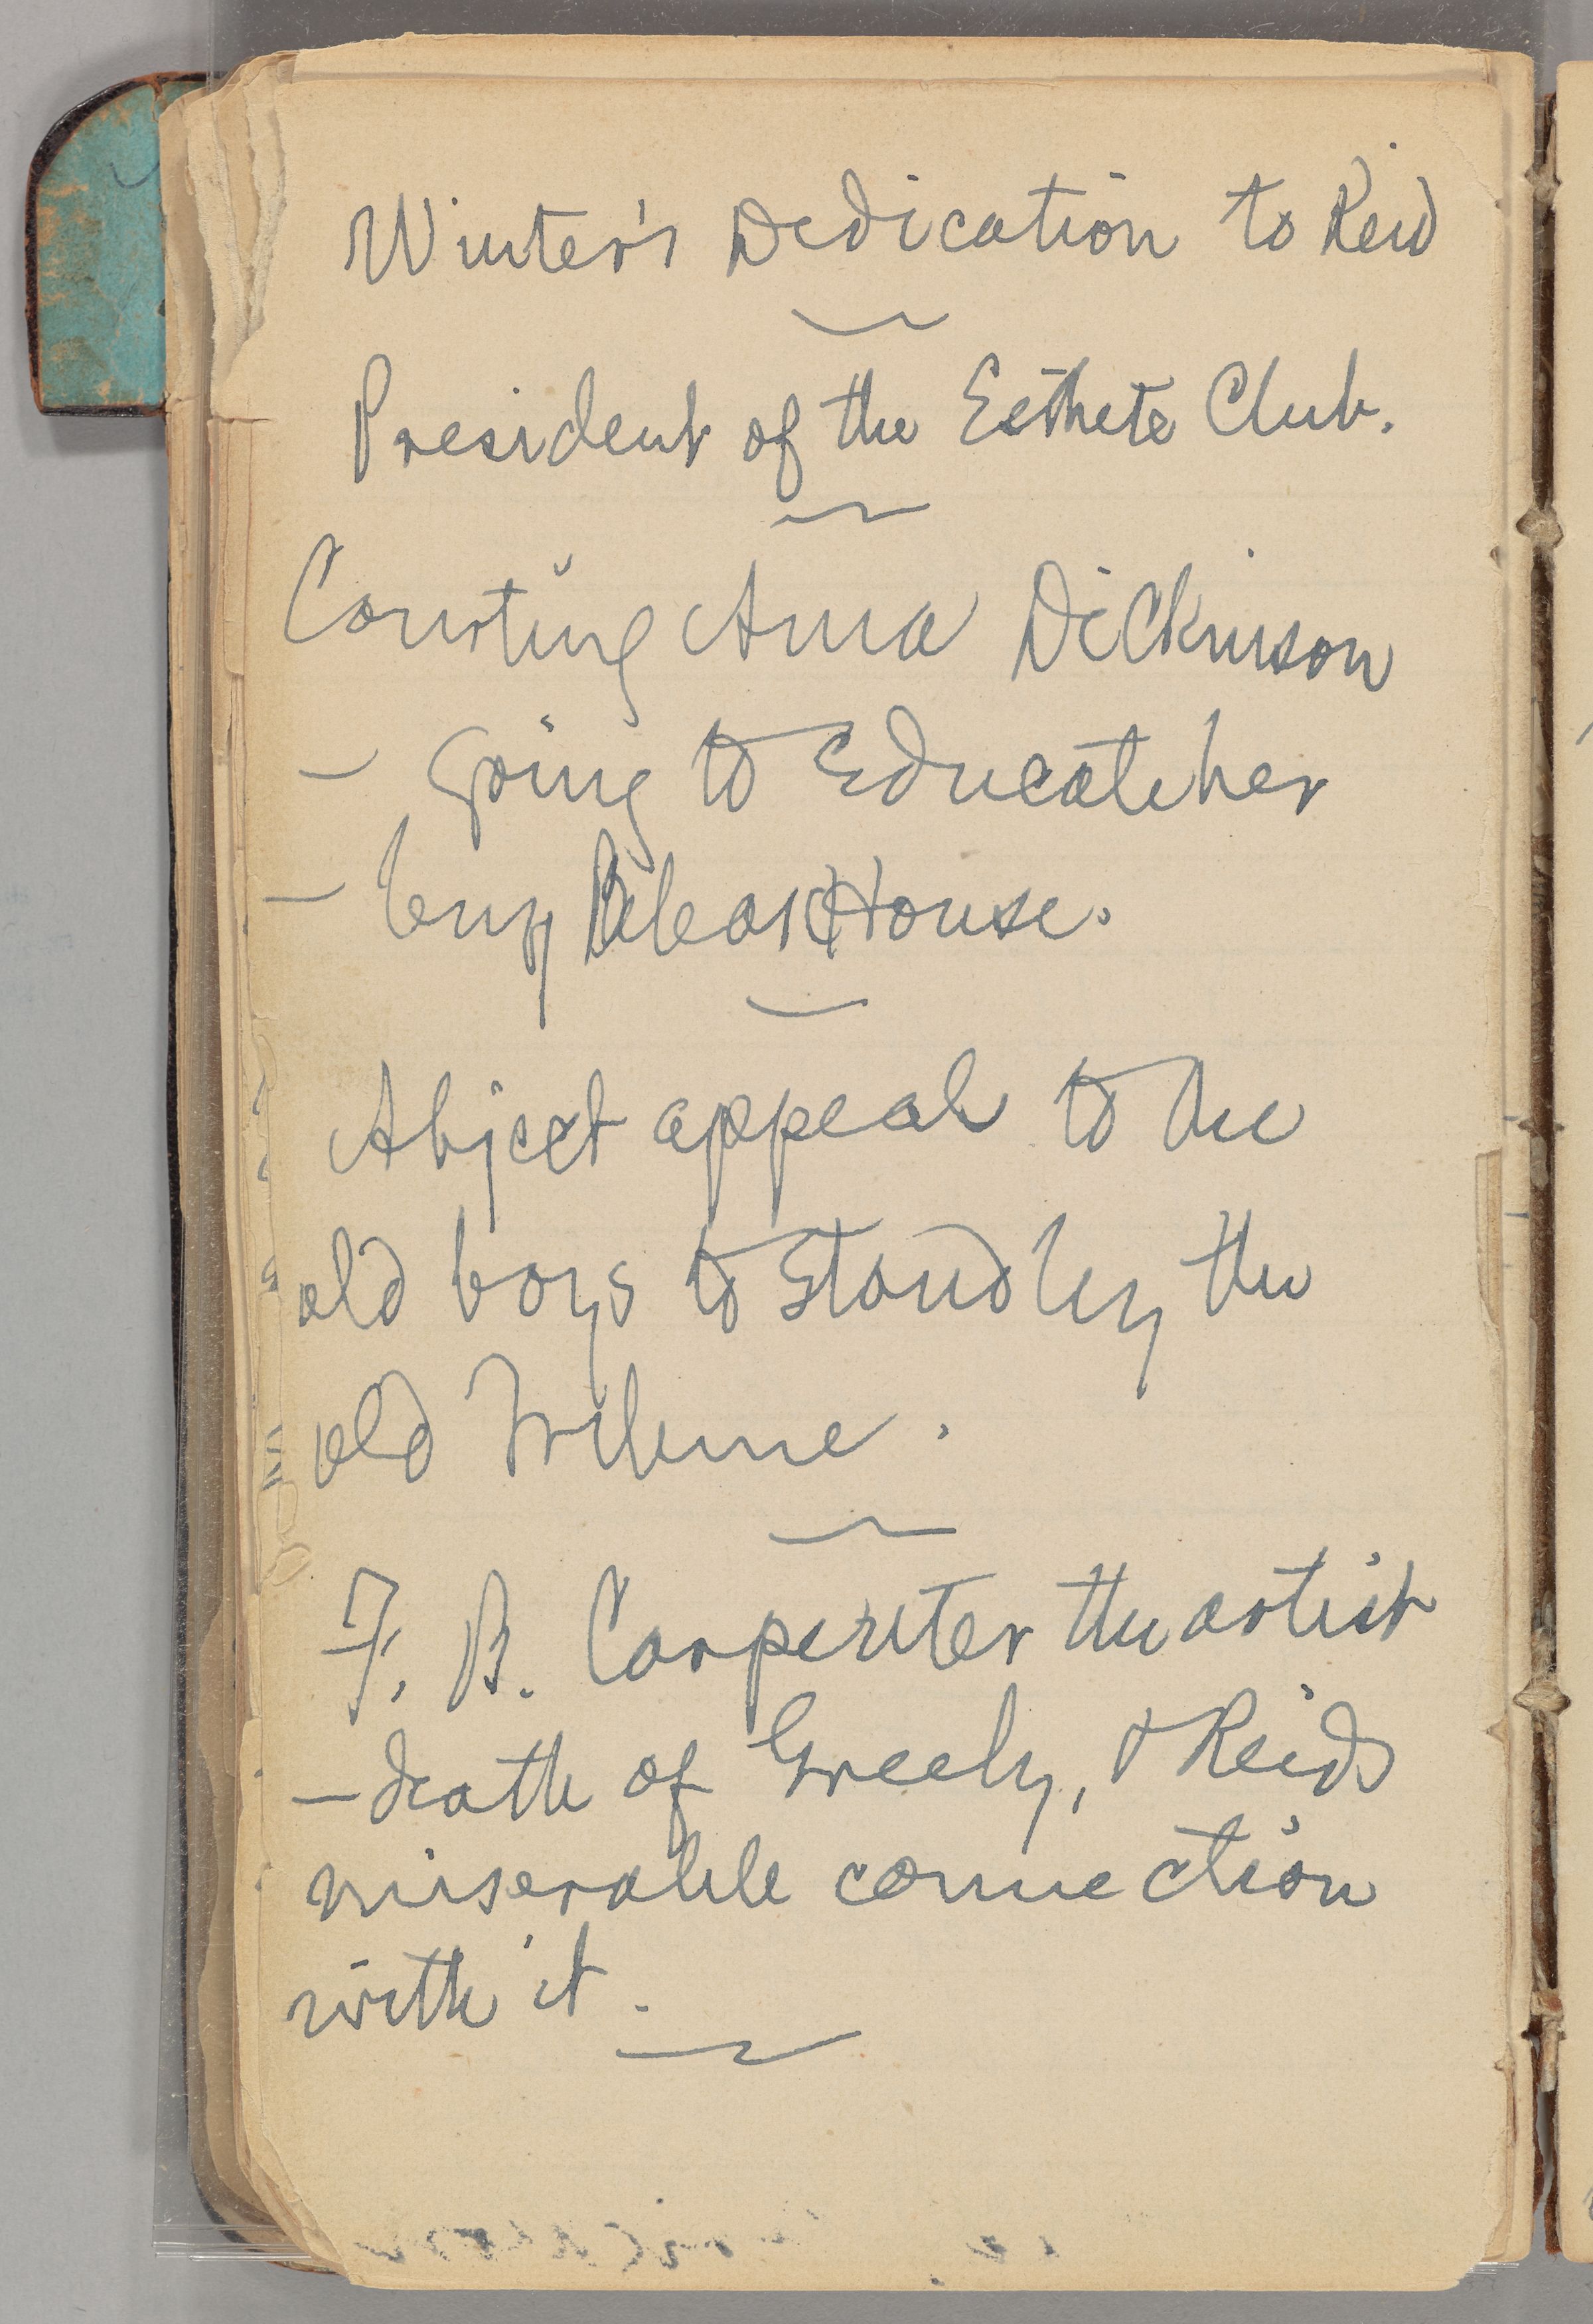 Winter's Dedication to Reid
President of the Esthete Club.
Courting Anna Dickinson
— Going to Educate her
— buy House.
Abject appeal to the
old boys to stand by the
old Tribune.
F. B. Carpenter the artist
—death of Greely, & Reids
miserable connection
with it.